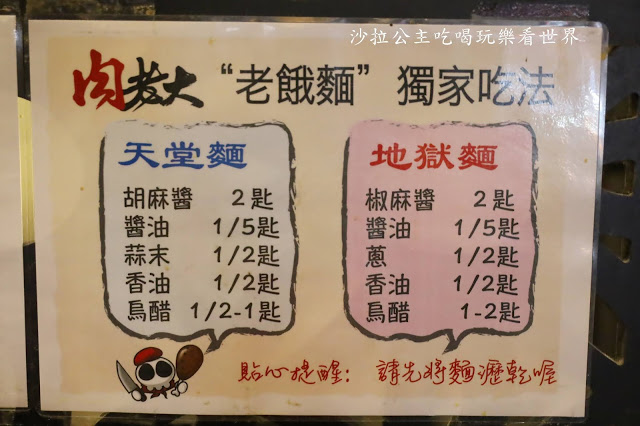 沙拉公主吃喝玩樂看世界
肉老大 “老餓麵” 獨家吃法
天堂麵
胡麻醬 2匙
醬油 1/5匙
蒜末 1/2匙
香油 1/2匙
烏醋 1/2-1匙
地獄麵
椒麻醬 2匙
醬油 1/5匙
蔥 1/2匙
香油 1/2匙
烏醋 1-2匙
貼心提醒： 請先將麵瀝乾喔